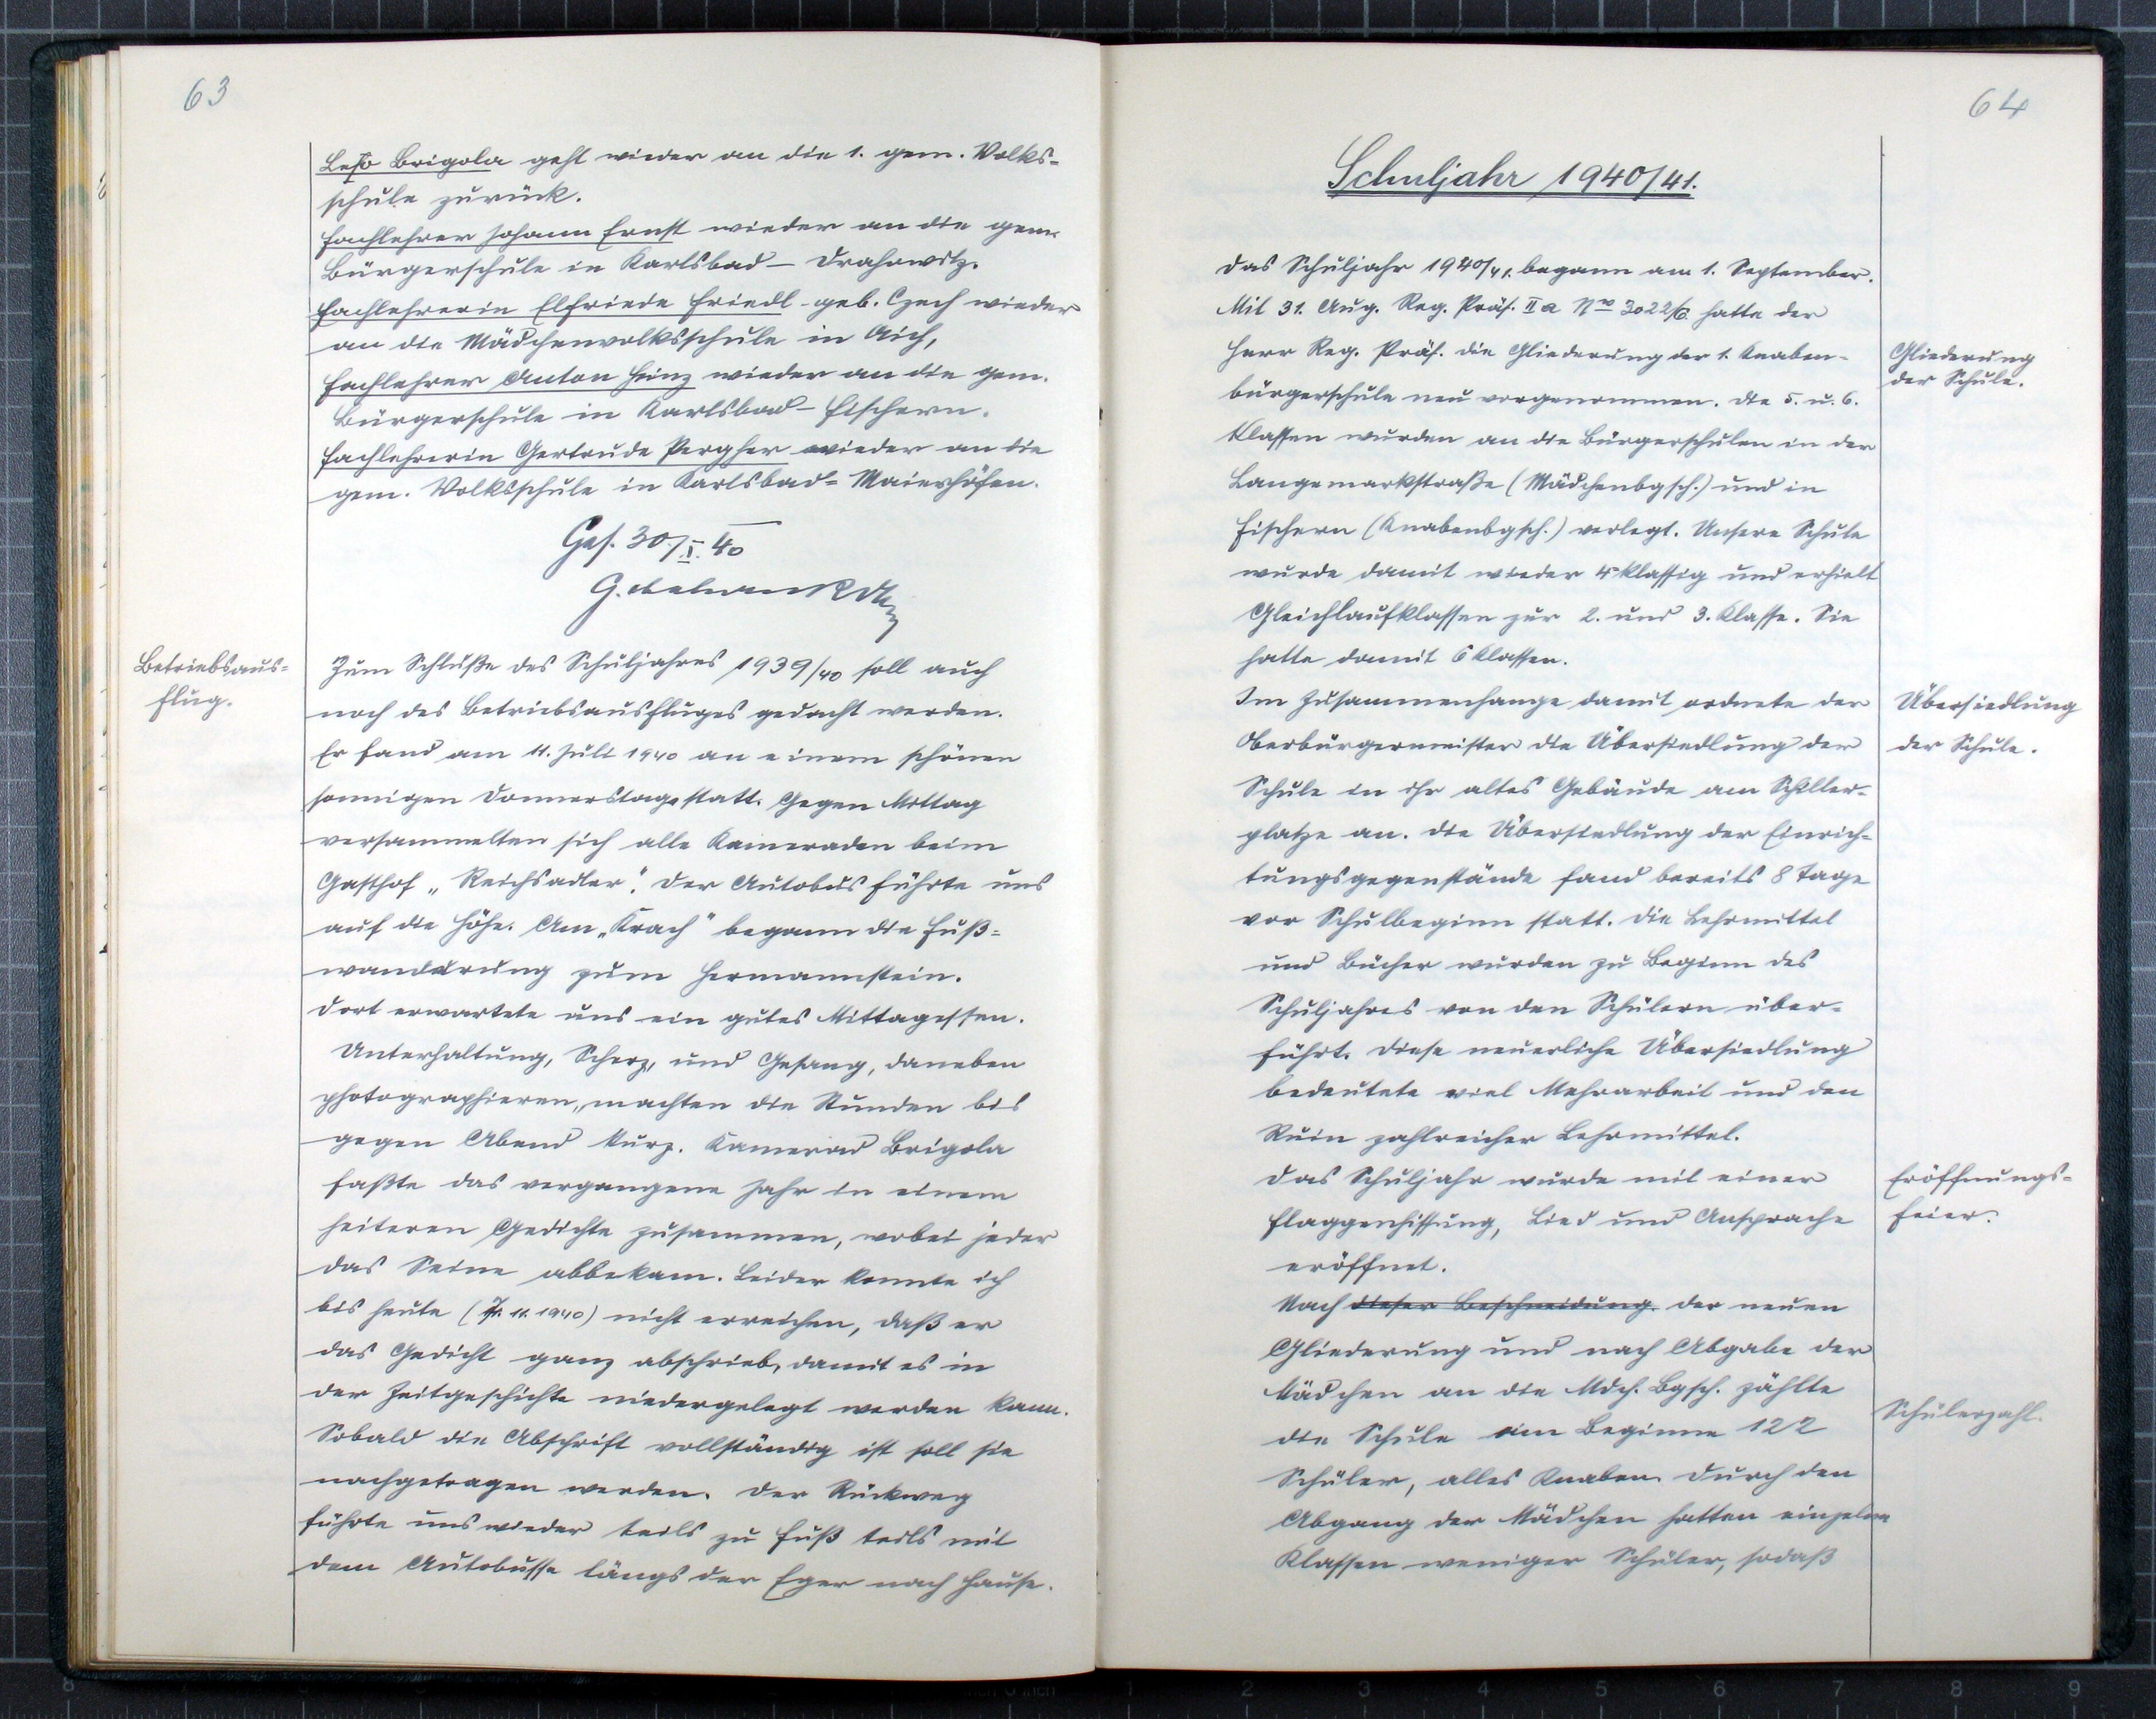 63
Leso Brigola geht wieder an die 1. gem. Volks-
schule zurück.
Fachlehrer Johann Ernst wieder an die gem.
Bürgerschule in Karlsbad – Drahowitz.
Fachlehrerin Elfriede Friedl geb. Czech wieder
an die Mädchenvolksschule in Aich,
Fachlehrer Anton Heinz wieder an die gem.
Bürgerschule in Karlsbad – Fischern.
Fachlehrerin Gertrude Pergher wieder an die
gem. Volksschule in Karlsbad = Maierhöfen.
Ges. 30/I. 40
Betriebsaus=
flug.
Zum Schluße des Schuljahres 1939/40 soll auch
noch des Betriebsausfluges gedacht werden.
Er fand am 11. Juli 1940 an einem schönen
sonnigen Donnerstage statt. Gegen Mittag
versammelten sich alle Kameraden beim
Gasthof „Reichsadler". Der Autobus führte uns
auf die Höhe. Am „Krach" begann die Fuß=
wanderung zum Hermannstein.
Dort erwartete uns ein gutes Mittagessen.
Unterhaltung, Scherz, und Gesang, daneben
photographieren, machten die Stunden bis
gegen Abend kurz. Kamerad Brigola
faßte das vergangene Jahr in einem
heiteren Gedichte zusammen, wobei jeder
das Seine abbekam. Leider konnte ich
bis heute (7. 11. 1940) nicht erreichen, daß er
das Gedicht ganz abschrieb, damit es in
der Zeitgeschichte niedergelegt werden kann.
Sobald die Abschrift vollständig ist soll sie
nachgetragen werden. Der Rückweg
führte uns wieder teils zu Fuß teils mit
dem Autobusse längs der Eger nach Hause.
64
Schuljahr 1940/41.
Das Schuljahr 1940/41. begann am 1. September.
Mit 31. Aug. Reg. Präs. II a No 3022/6 hatte der
Herr Reg. Präs. die Gliederung der 1. Knaben-
bürgerschule neu vorgenommen. Die 5. u. 6.
Klassen wurden an die Bürgerschulen in der
Langemarkstraße (Mädchenbgsch.) und in
Fischern (Knabenbgsch.) verlegt. Unsere Schule
wurde damit wieder 4klassig und erhielt
Gleichlaufklassen zur 2. und 3. Klasse. Sie
hatte damit 6 Klassen.
Gliederung
der Schule.
Im Zusammenhange damit ordnete der
Oberbürgermeister die Übersiedlung der
Schule in ihr altes Gebäude am Schiller-
platze an. Die Übersiedlung der Einrich-
tungsgegenstände fand bereits 8 Tage
vor Schulbeginn statt. Die Lehrmittel
und Bücher wurden zu Beginn des
Schuljahres von den Schülern über-
führt. Diese neuerliche Übersiedlung
bedeutete viel Mehrarbeit und den
Ruin zahlreicher Lehrmittel.
Übersiedlung
der Schule.
Das Schuljahr wurde mit einer
Flaggenhissung, Lied und Ansprache
eröffnet.
Eröffnungs-
feier.
Nach dieser Beschneidung der neuen
Gliederung und nach Abgabe der
Mädchen an die Mdch. Bgsch. zählte
die Schule am Beginne 122
Schüler, alles Knaben. Durch den
Abgang der Mädchen hatten einzelne
Klassen weniger Schüler, sodaß
Schülerzahl.